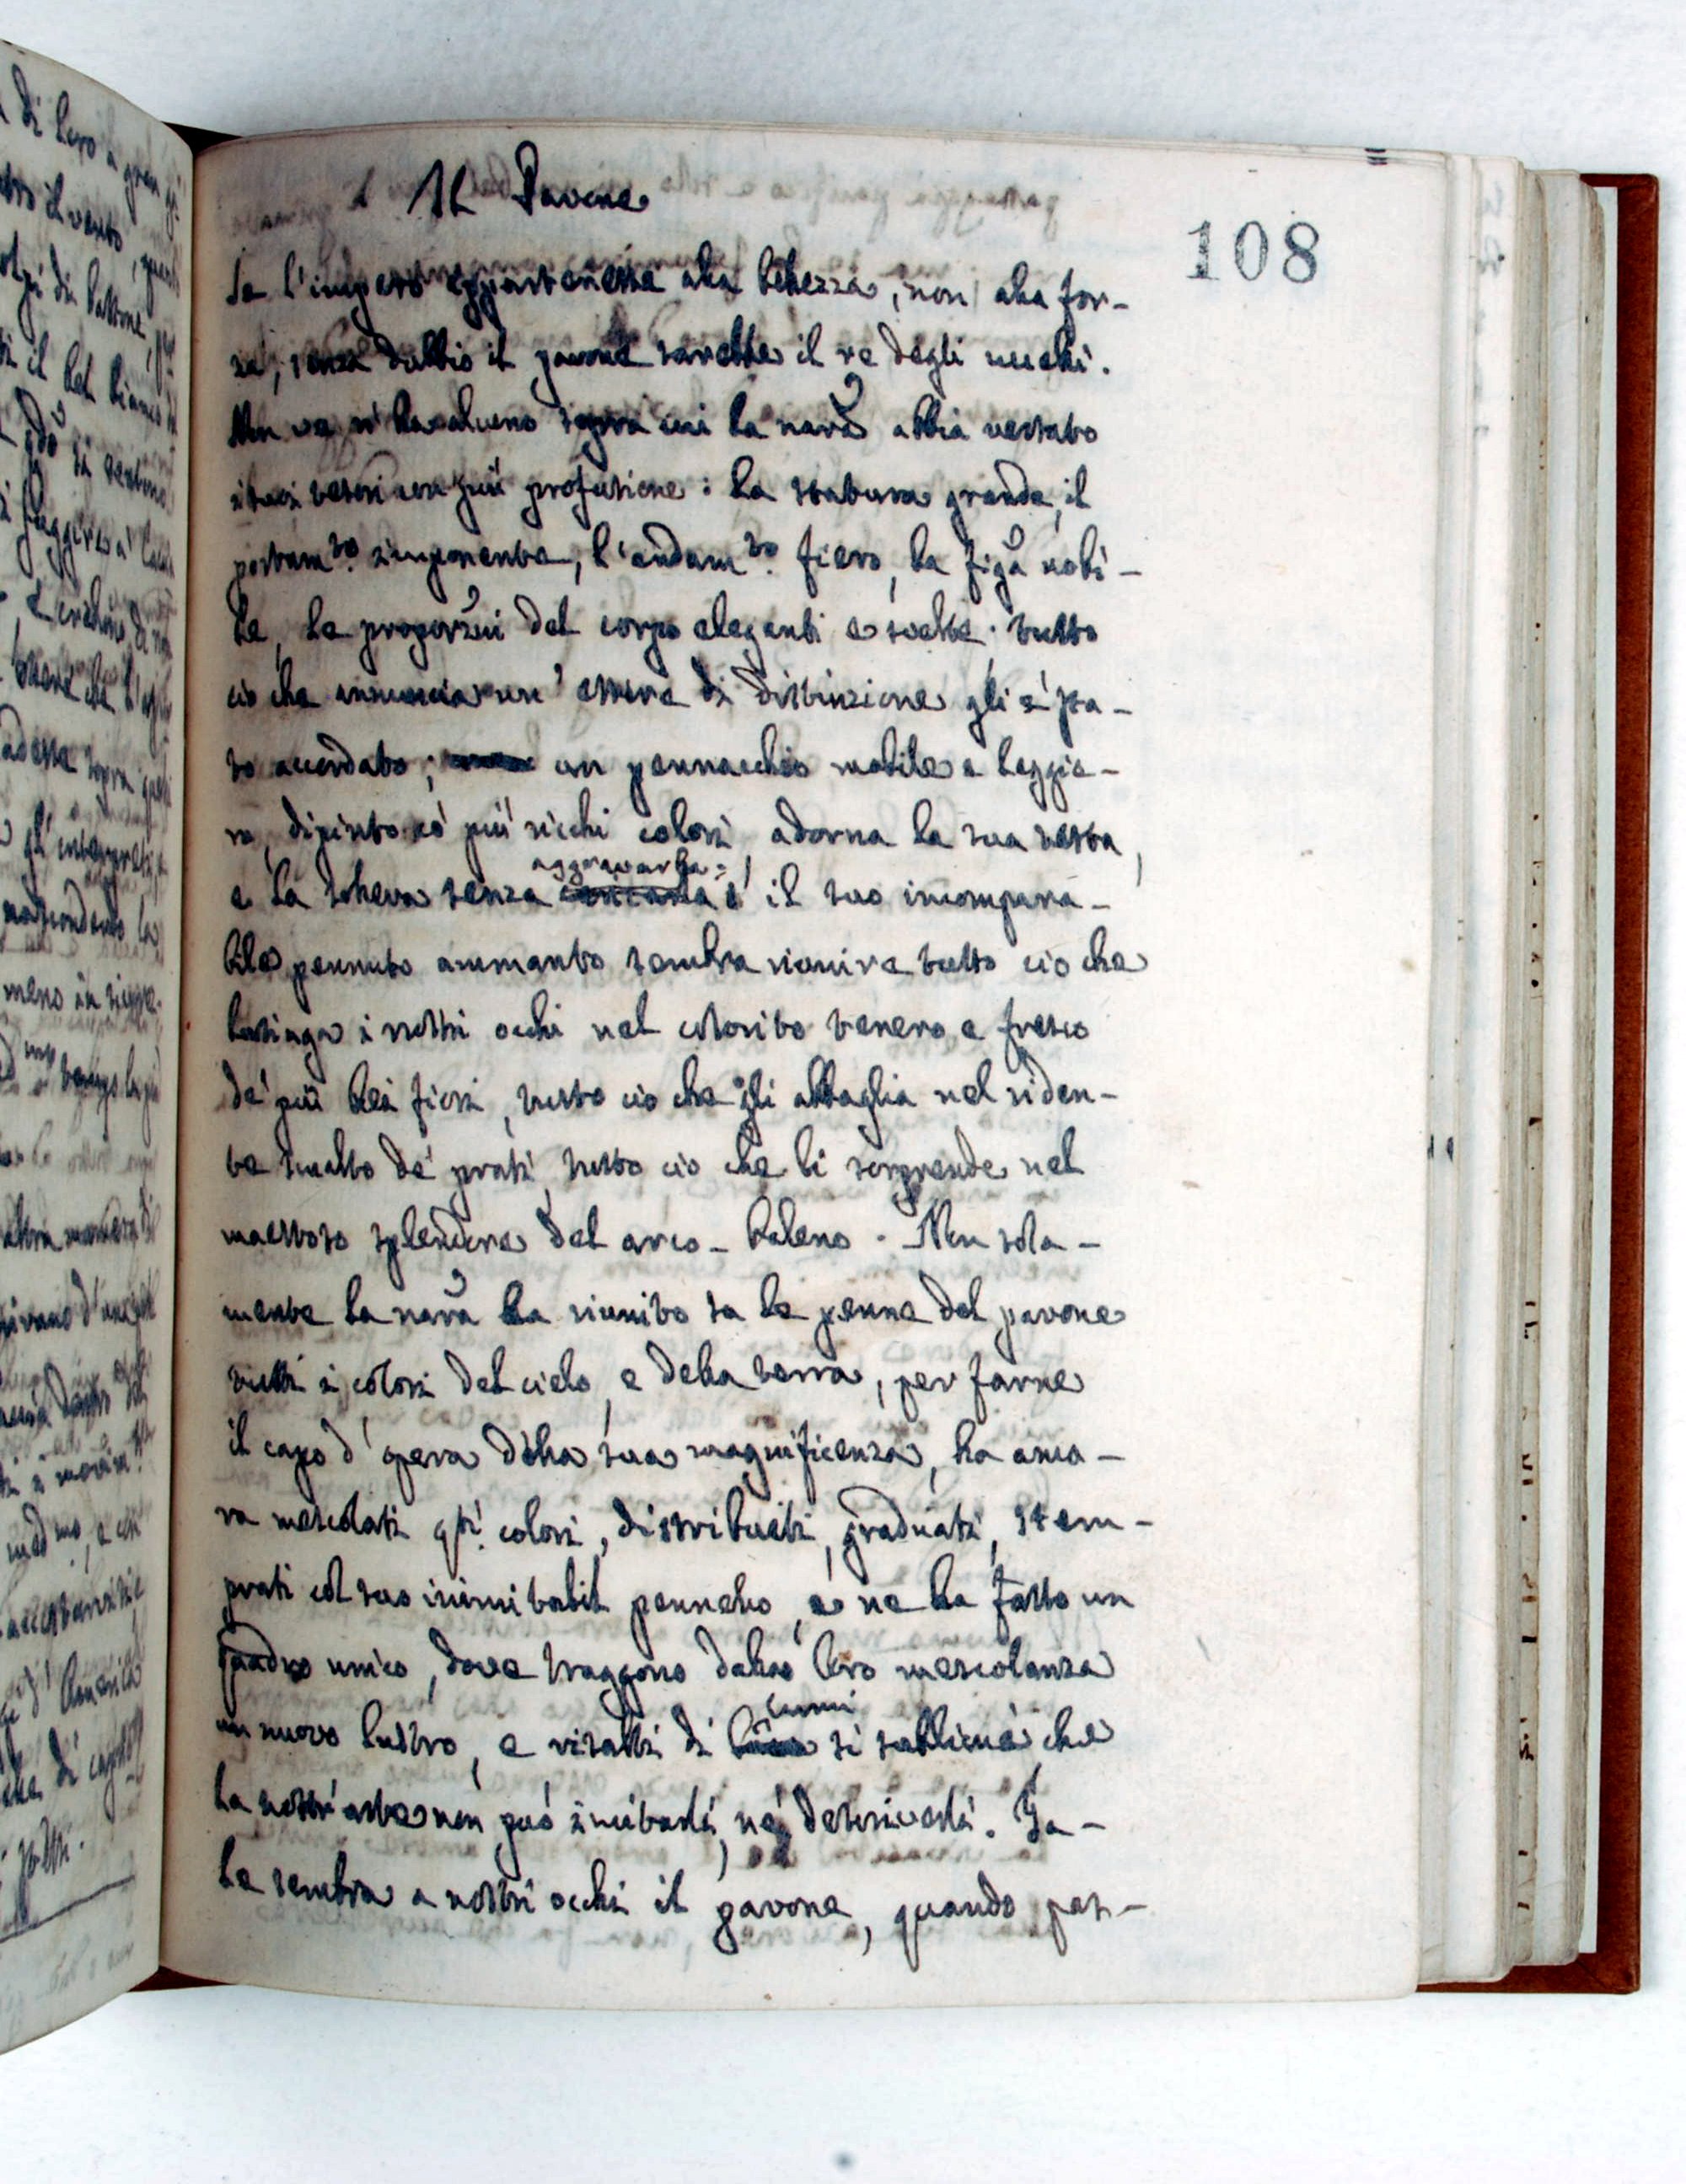 Il Pavone
108
Se l'impero appartenesse alla bellezza, non alla for-
za, senza dubbio il pavone sarebbe il re degli uccelli.
Non ve n'ha alcuno sopra cui la narã abbia versato
i suoi tesori con più profusione: la statura grande, il
portam.to imponente, l'andam.to fiero, la figã nobi-
le, le proporzni del corpo eleganti e svelte: tutto
ciò che annuncia un' essere di distinzione gli è sta-
to accordato; un pennacchio mobile e leggie-
ro, dipinto co' più ricchi colori adorna la sua testa,
aggravarla:
e la solleva senza caricarla: il suo incompara-
bile pennuto ammanto sembra riunire tutto ciò che
lusinga i nostri occhi nel colorito tenero, e fresco
de' più bei fiori, tutto ciò che gli abbaglia nel riden-
te smalto de' prati, tutto ciò che li sorprende nel
maestoso splendore del arco-baleno. Non sola-
mente la narã ha riunito su le penne del pavone
tutti i colori del cielo, e della terra, per farne
il capo d'opera della sua magnificenza, ha anco-
ra mescolati qsti colori, distribuiti, graduati, stem-
prati col suo inimitabil pennello, e ne ha fatto un
quadro unico, dove traggono dalla loro mescolanza
lumi
un nuovo lustro, e risalti di sì sublimi che
la nostr'arte non può imitarli, né descriverli. Ta-
le sembra a nostri occhi il pavone, quando pas-